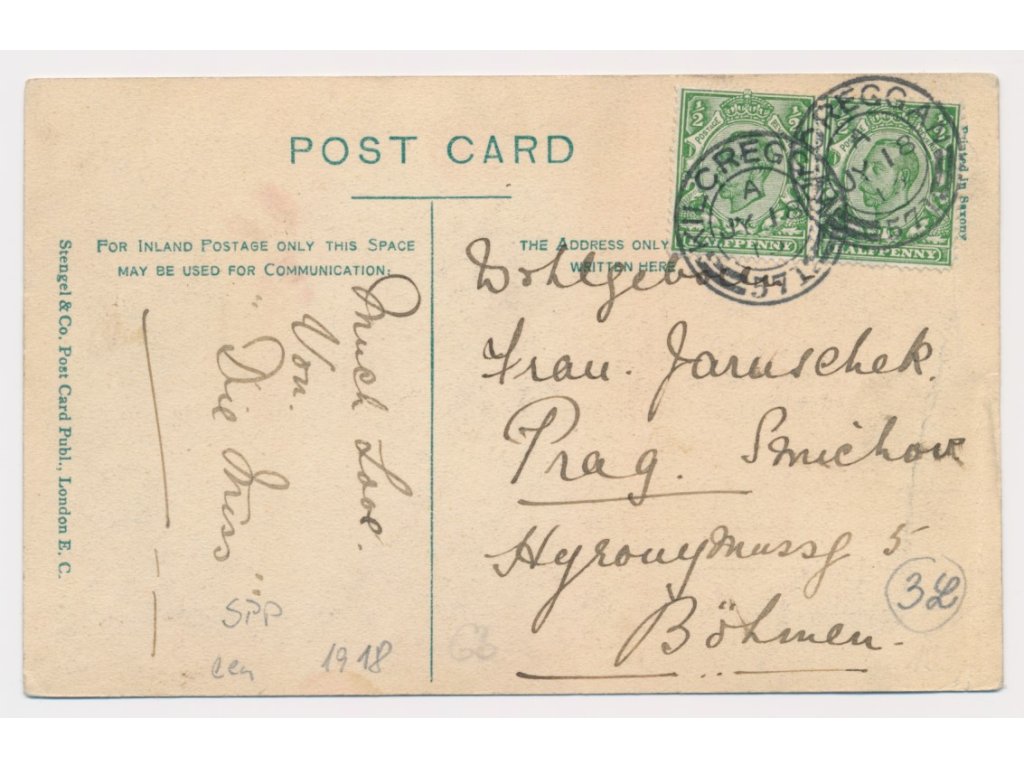 POST CARD
FOR INLAND POSTAGE ONLY THIS SPACE
MAY BE USED FOR COMMUNICATION:
THE ADDRESS ONLY
WRITTEN HERE
Stengel & Co. Post Card Publ., London E. C.
Printed in Saxony
½ ½
POSTAGE
HALFPENNY
HALFPENNY
CREGG
A
JY 18
571
CREGGA
A
JY 18
571
Much Love.
Von.
"Die Miss"
Frau. Jaruschek.
Prag. Smichow
Hyronymussg 5
Böhmen.
3L
SPP
1918